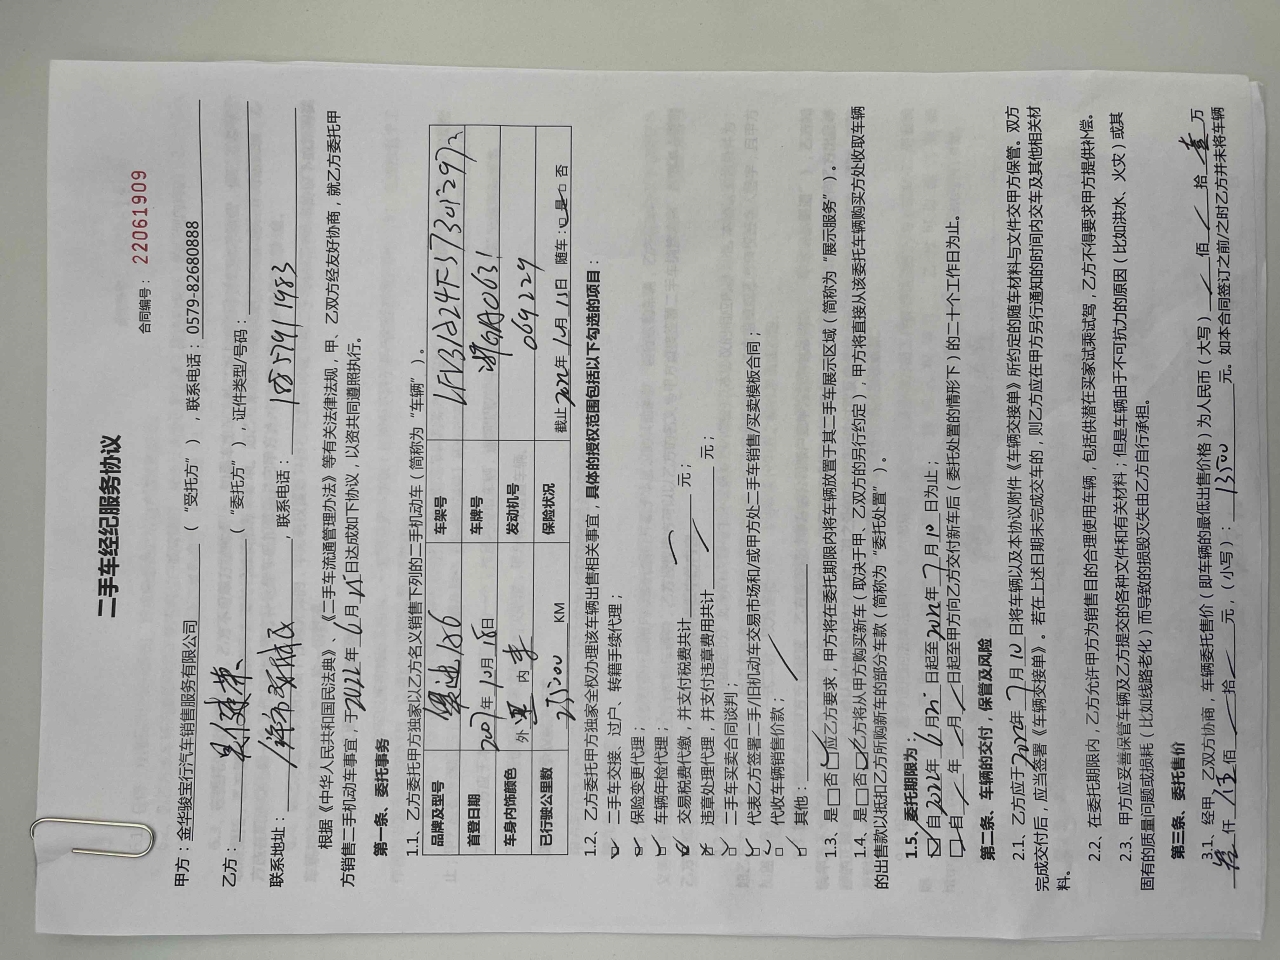 二手车经纪服务协议
合同编号： 22061909
甲方：金华骏宝行汽车销售服务有限公司 （“受托方”），联系电话：0579-82680888
乙方： （“委托方”），证件类型/号码：
联系地址： ，联系电话：
根据《中华人民共和国民法典》、《二手车流通管理办法》等有关法律法规，甲、乙双方经友好协商，就乙方委托甲
方销售二手机动车事宜，于2022年6月25日达成如下协议，以资共同遵照执行。
第一条、委托事务
1.1、乙方委托甲方独家以乙方名义销售下列的二手机动车（简称为“车辆”）。
品牌及型号 车架号
首登日期 2007年10月18日 车牌号 浙GA0631
车身内饰颜色 外 黑 内 发动机号 069229
已行驶公里数 KM 保险状况 截止2022年10月11日 随车：□是□否
1.2、乙方委托甲方独家全权办理该车辆出售相关事宜，具体的授权范围包括以下勾选的项目：
二手车交接、过户、转籍手续代理；
保险变更代理；
车辆年检代理；
交易税费代缴，并支付税费共计 元；
违章处理代理，并支付违章费用共计 元；
二手车买卖合同谈判；
代表乙方签署二手/旧机动车交易市场和/或甲方处二手车销售/买卖模板合同；
代收车辆销售价款；
其他：
1.3、是□否☑应乙方要求，甲方将在委托期限内将车辆放置于其二手车展示区域（简称为“展示服务”）。
1.4、是□否☑乙方将从甲方购买新车（取决于甲、乙双方的另行约定），甲方将直接从该委托车辆购买方处收取车辆
的出售款以抵扣乙方所购新车的部分车款（简称为“委托处置”）。
1.5、委托期限为：
☑自2022年6月25日起至2022年7月10日为止；
□自 年 月 日起至甲方向乙方交付新车后（委托处置的情形下）的二十个工作日为止。
第二条、车辆的交付，保管及风险
2.1、乙方应于2022年7月10日将车辆以及本协议附件《车辆交接单》所约定的随车材料与文件交甲方保管。双方
完成交付后，应当签署《车辆交接单》。若在上述日期未完成交车的，则乙方应在甲方另行通知的时间内交车及其他相关材
料。
2.2、在委托期限内，乙方允许甲方为销售目的合理使用车辆，包括供潜在买家试乘试驾，乙方不得要求甲方提供补偿。
2.3、甲方应妥善保管车辆及乙方提交的各种文件和有关材料；但是车辆由于不可抗力的原因（比如洪水、火灾）或其
固有的质量问题或损耗（比如线路老化）而导致的损毁灭失由乙方自行承担。
第三条、委托售价
3.1、经甲、乙双方协商，车辆委托售价（即车辆的最低出售价格）为人民币（大写） 佰 拾 壹 万
仟 伍 佰 拾 元，（小写）： 13500 元。如本合同签订之前/之时乙方并未将车辆